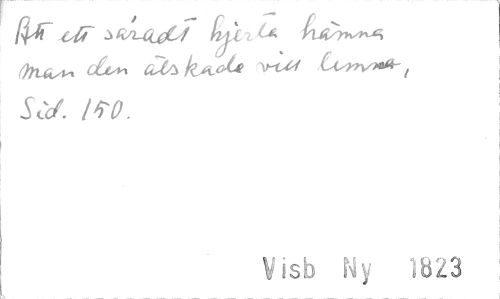 Att ett såradt hjerta hämna
man den älskade vill lemna,
Sid. 150.
Visb Ny 1823